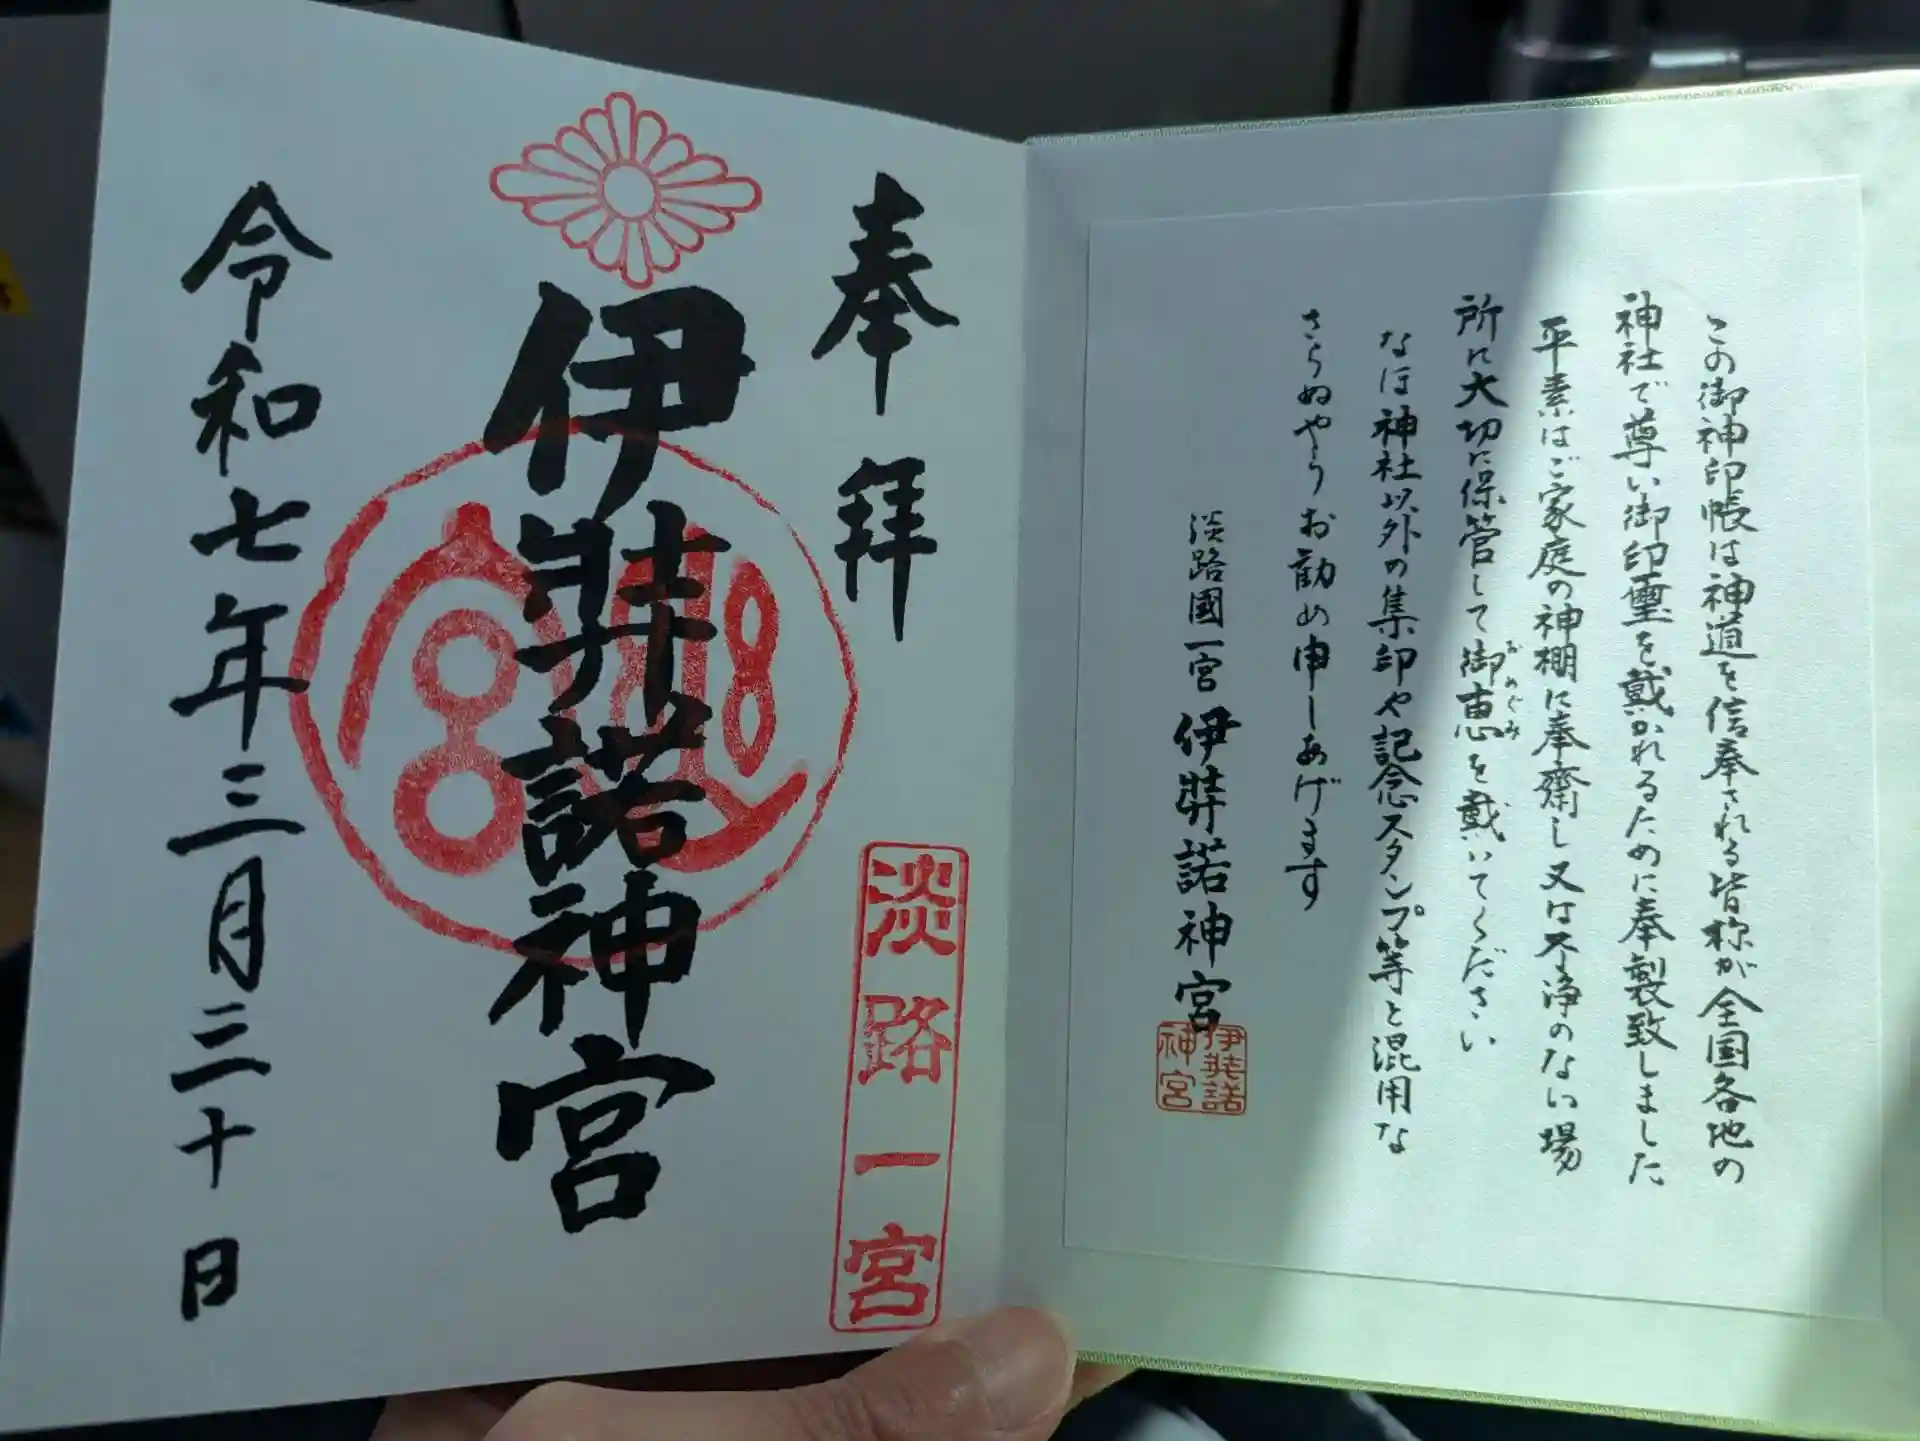 この御神印帳は神道を信奉される皆様が全国各地の
神社で尊い御印璽を戴かれるために奉製致しました
平素はご家庭の神棚に奉齋し又は不浄のない場
所に大切に保管して御恵を戴いてください
おめぐみ
なほ神社以外の集印や記念スタンプ等と混用な
さらぬやうお勧め申しあげます
淡路國一宮 伊弉諾神宮
伊弉諾
神宮
奉拜
淡路一宮
伊弉諾神宮
令和七年三月三十日